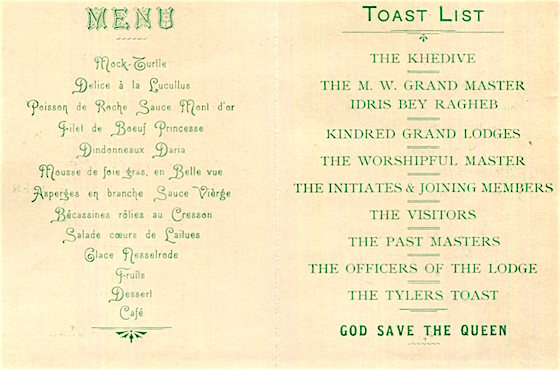 MENU
Mock-Turtle
Delice à la Lucullus
Poisson de Roche Sauce Mont d'or
Filet de Boeuf Princesse
Dindonneaux Daria
Mousse de foie gras, en Belle vue
Asperges en branche Sauce Vièrge
Bécassines rôlies au Cresson
Salade cœurs de Laitues
Glace Nesselrode
Fruits
Dessert
Café
TOAST LIST
THE KHEDIVE
THE M. W. GRAND MASTER
IDRIS BEY RAGHEB
KINDRED GRAND LODGES
THE WORSHIPFUL MASTER
THE INITIATES & JOINING MEMBERS
THE VISITORS
THE PAST MASTERS
THE OFFICERS OF THE LODGE
THE TYLERS TOAST
GOD SAVE THE QUEEN